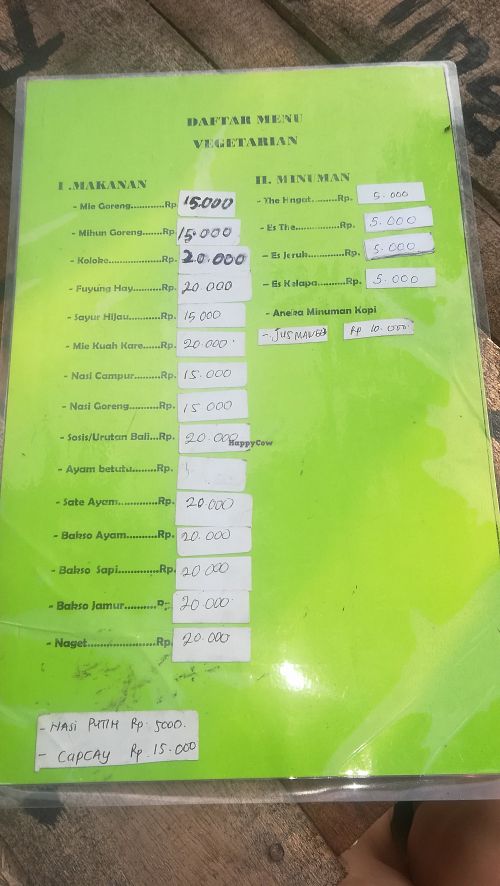 DAFTAR MENU
VEGETARIAN
I .MAKANAN
- Mie Goreng............Rp. 15.000
- Mihun Goreng......Rp. 15.000
- Koloke...................Rp. 20.000
- Fuyung Hay.........Rp. 20.000
- Sayur Hijau..........Rp. 15.000
- Mie Kuah Kare.......Rp. 20.000
- Nasi Campur.........Rp. 15.000
- Nasi Goreng..........Rp. 15.000
- Sosis/Urutan Bali...Rp. 20.000
- Ayam betutu........Rp.
- Sate Ayam.............Rp. 20.000
- Bakso Ayam..........Rp. 20.000
- Bakso Sapi............Rp. 20.000
- Bakso Jamur..........Rp. 20.000
- Naget......................Rp. 20.000
- NASI PUTIH Rp. 5000.
- CAPCAY Rp. 15.000
II. MINUMAN
- The Hngat.........Rp. 5.000
- Es The................Rp. 5.000
- Es Jeruk............Rp. 5.000
- Es Kelapa..........Rp. 5.000
- Aneka Minuman Kopi
- JUS Rp 10.000.
HappyCow